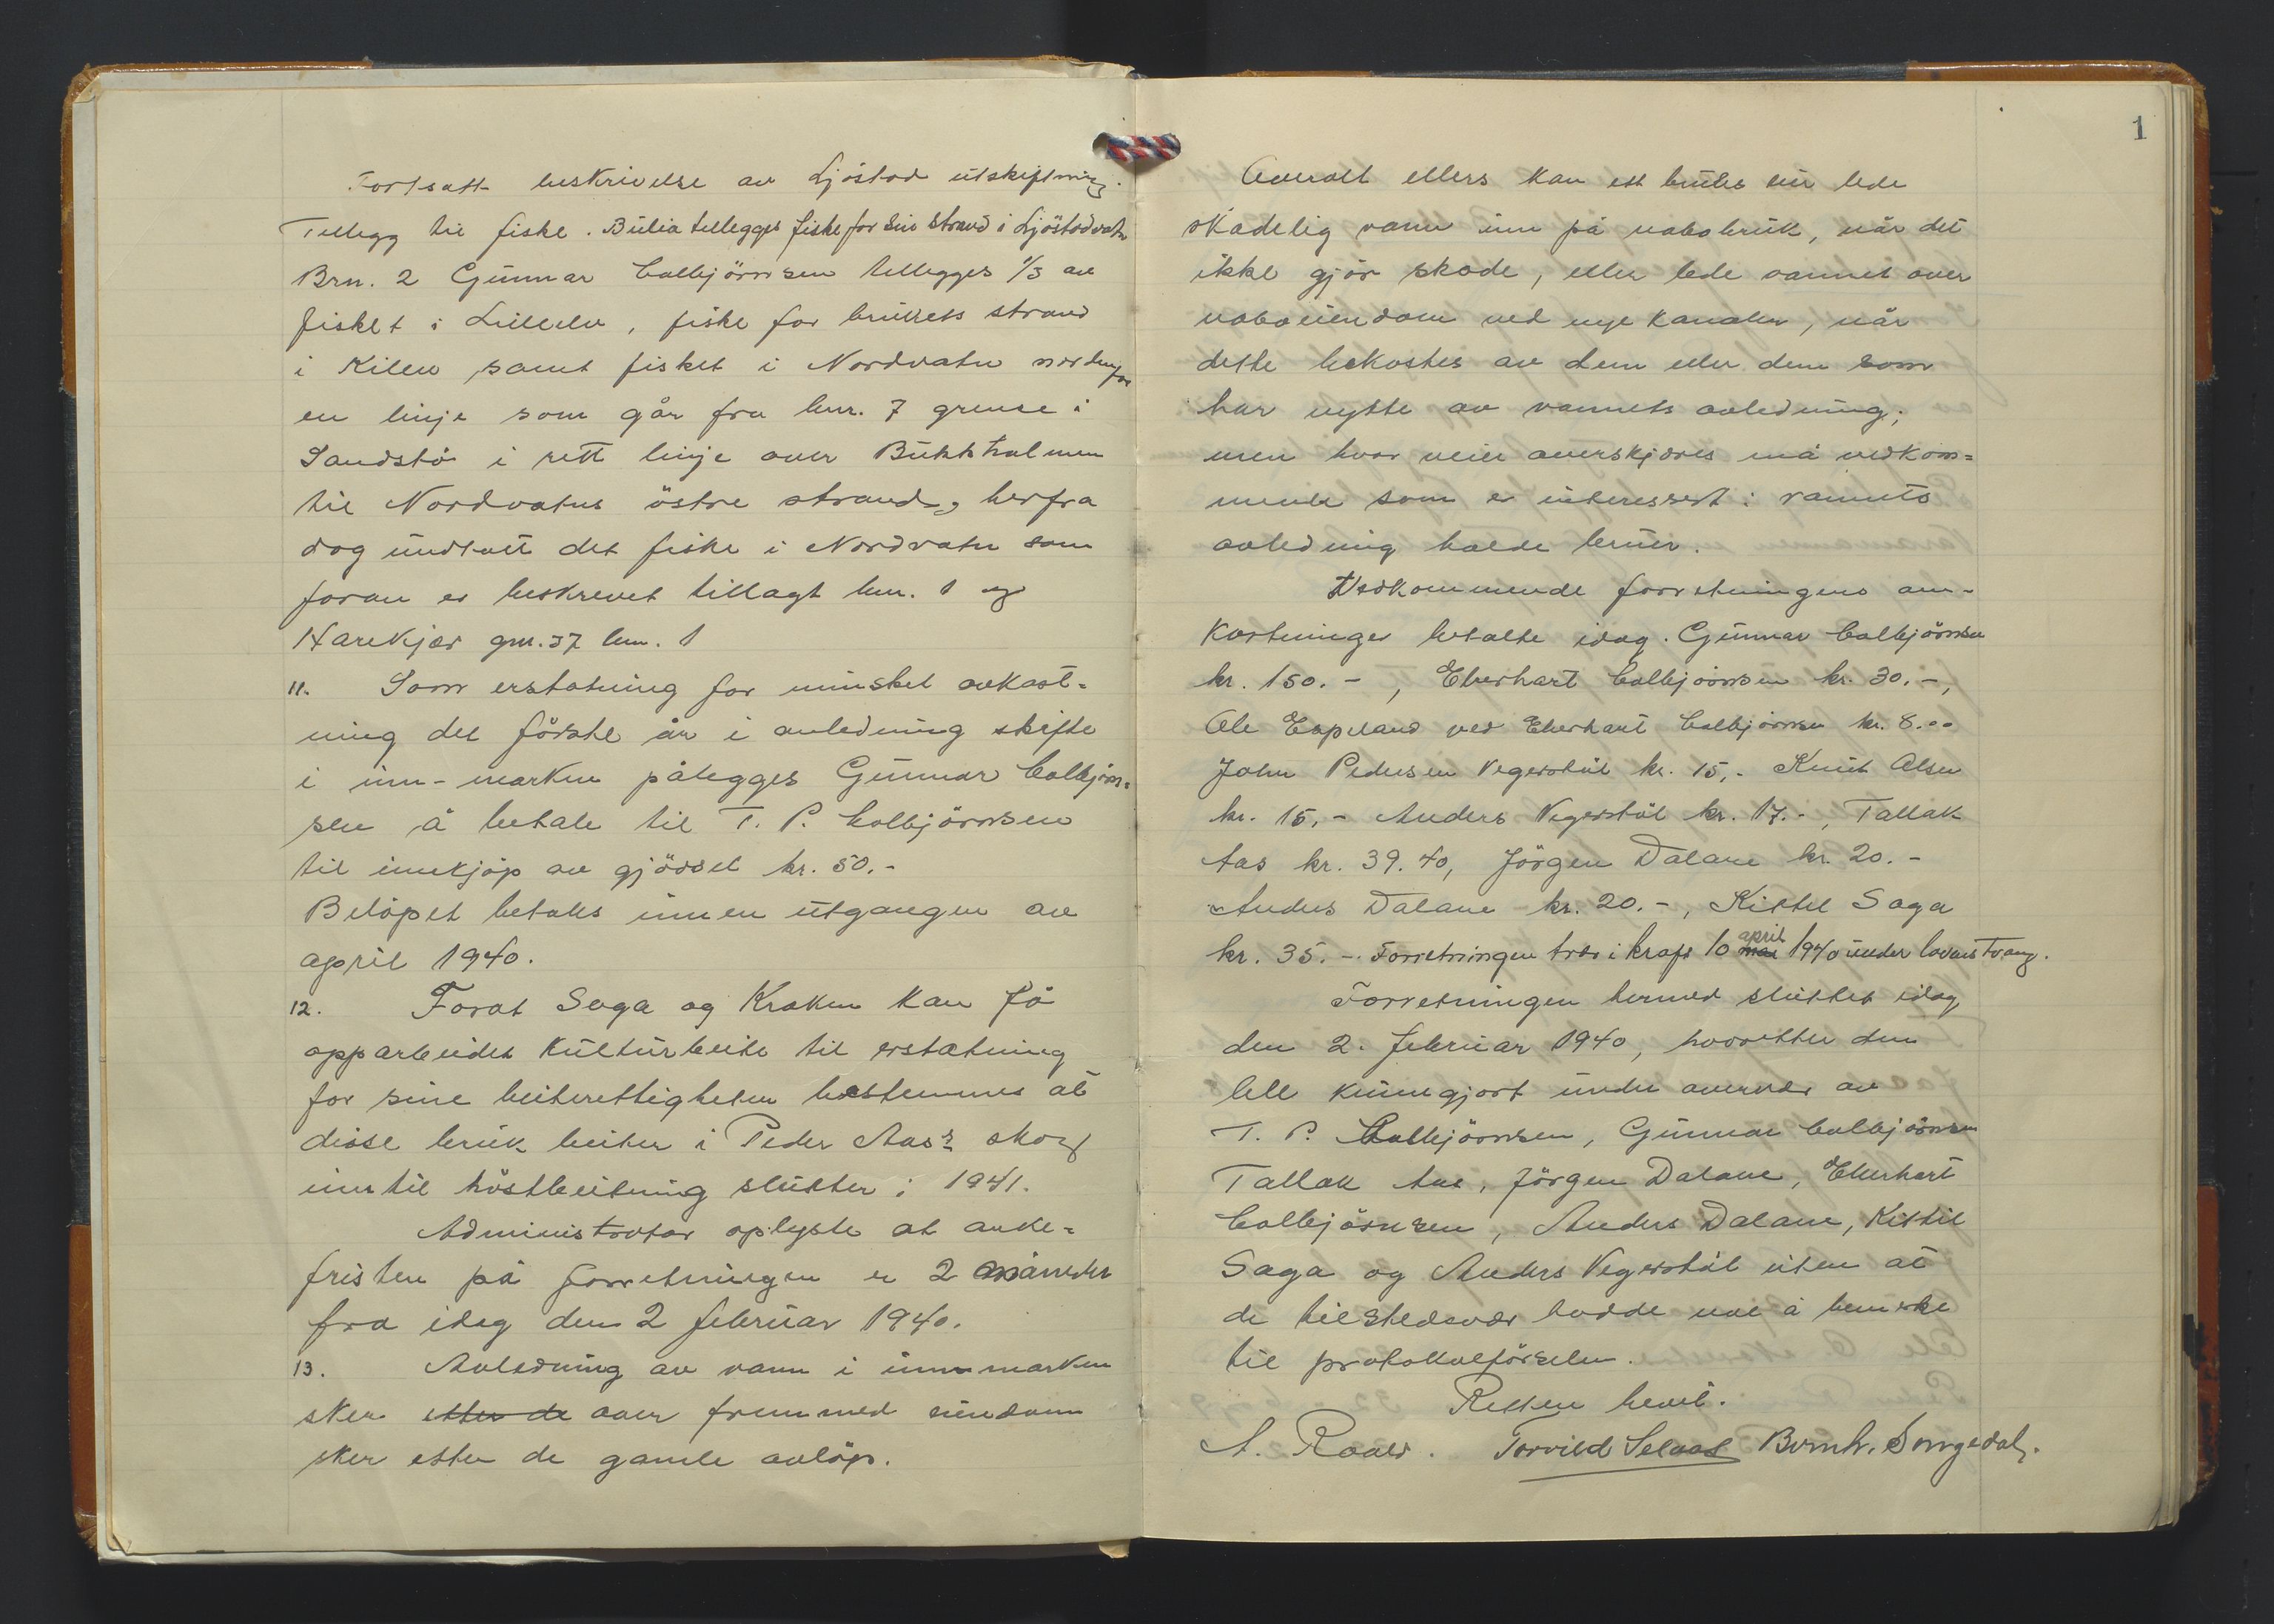 Fortsatt beskrivelse av Ljöstad utskiftning.
Tillegg til fiske. Bulia tillegges fiske for sin strand i Ljöstadvatn
Brn. 2 Gunnar Colbjörnsen tillegges 1/3 av
fisket i Lilleelv, fiske for brukets strand
i Kilen, samt fisket i Nordvatn nordenfor
en linje som går fra bnr. 7 grense i
Sandstö i rett linje over Bukkholmen
til Nordvatns östre strand, herfra
dog undtatt det fiske i Nordvatn som
foran er beskrevet tillagt bnr. 1 og
Harekjær gnr. 37 bnr. 1
11. Som erstatning for minsket avkast=
ning det förste år i anledning skifte
i inn-marken pålegges Gunnar Colbjörn=
sen å betale til T. P. Colbjörnsen
til innkjöp av gjödsel kr. 50.-
Belöpet betales innen utgangen av
april 1940.
12. Forat Saga og Kraken kan få
opparbeidet kulturbeite til erstatning
for sine beiterettigheter bestemmes at
disse bruk beiter i Peder Aas's skog
inntil höstbeitning slutter i 1941.
Administrator oplyste at anke=
fristen på forretningen er 2 måneder
fra idag den 2 februar 1940.
13. Avledning av vann i innmarken
sker etter de over fremmed eiendom
sker etter de gamle avlöp.
1
Overalt ellers kan ett bruks eier lede
skadelig vann inn på nabobruk, når det
ikke gjör skade, eller lede vannet over
naboeiendom ved nye kanaler, når
dette bekostes av dem eller dem som
har nytte av vannets avledning;
men hvor veier overskjæres må vedkom=
mende som er interessert i vannets
avledning holde bruer.
Vedkommende forretningens om-
kostninger betalte idag. Gunnar Colbjörnsen
kr. 150.-, Eberhart Colbjörnsen kr. 30.-,
Ole Espeland ved Eberhart Colbjörnsen kr. 8.00
John Pedersen Vegerstöl kr. 15,- Knut Olsen
kr. 15,- Anders Vegerstöl kr. 17.-, Tallak
Aas kr. 39.40, Jörgen Dalane kr. 20.-
Anders Dalane kr. 20.-, Kittil Saga
kr. 35.-. Forretningen trær i kraft 10 mai april 1940 under lovens tvang.
Forretningen hermed sluttet idag,
den 2. februar 1940, hvoretter den
blev kunngjort under overvær av
T. P. Colbjörnsen, Gunnar Colbjörnsen
Tallak Aas, Jörgen Dalane, Eberhart
Colbjörnsen, Anders Dalane, Kittil
Saga og Anders Vegerstöl uten at
de tilstedevær hadde noe å bemerke
til protokolförselen.
Retten hevet.
A. Roald. Torvild Selaas Bernh. Songedal.